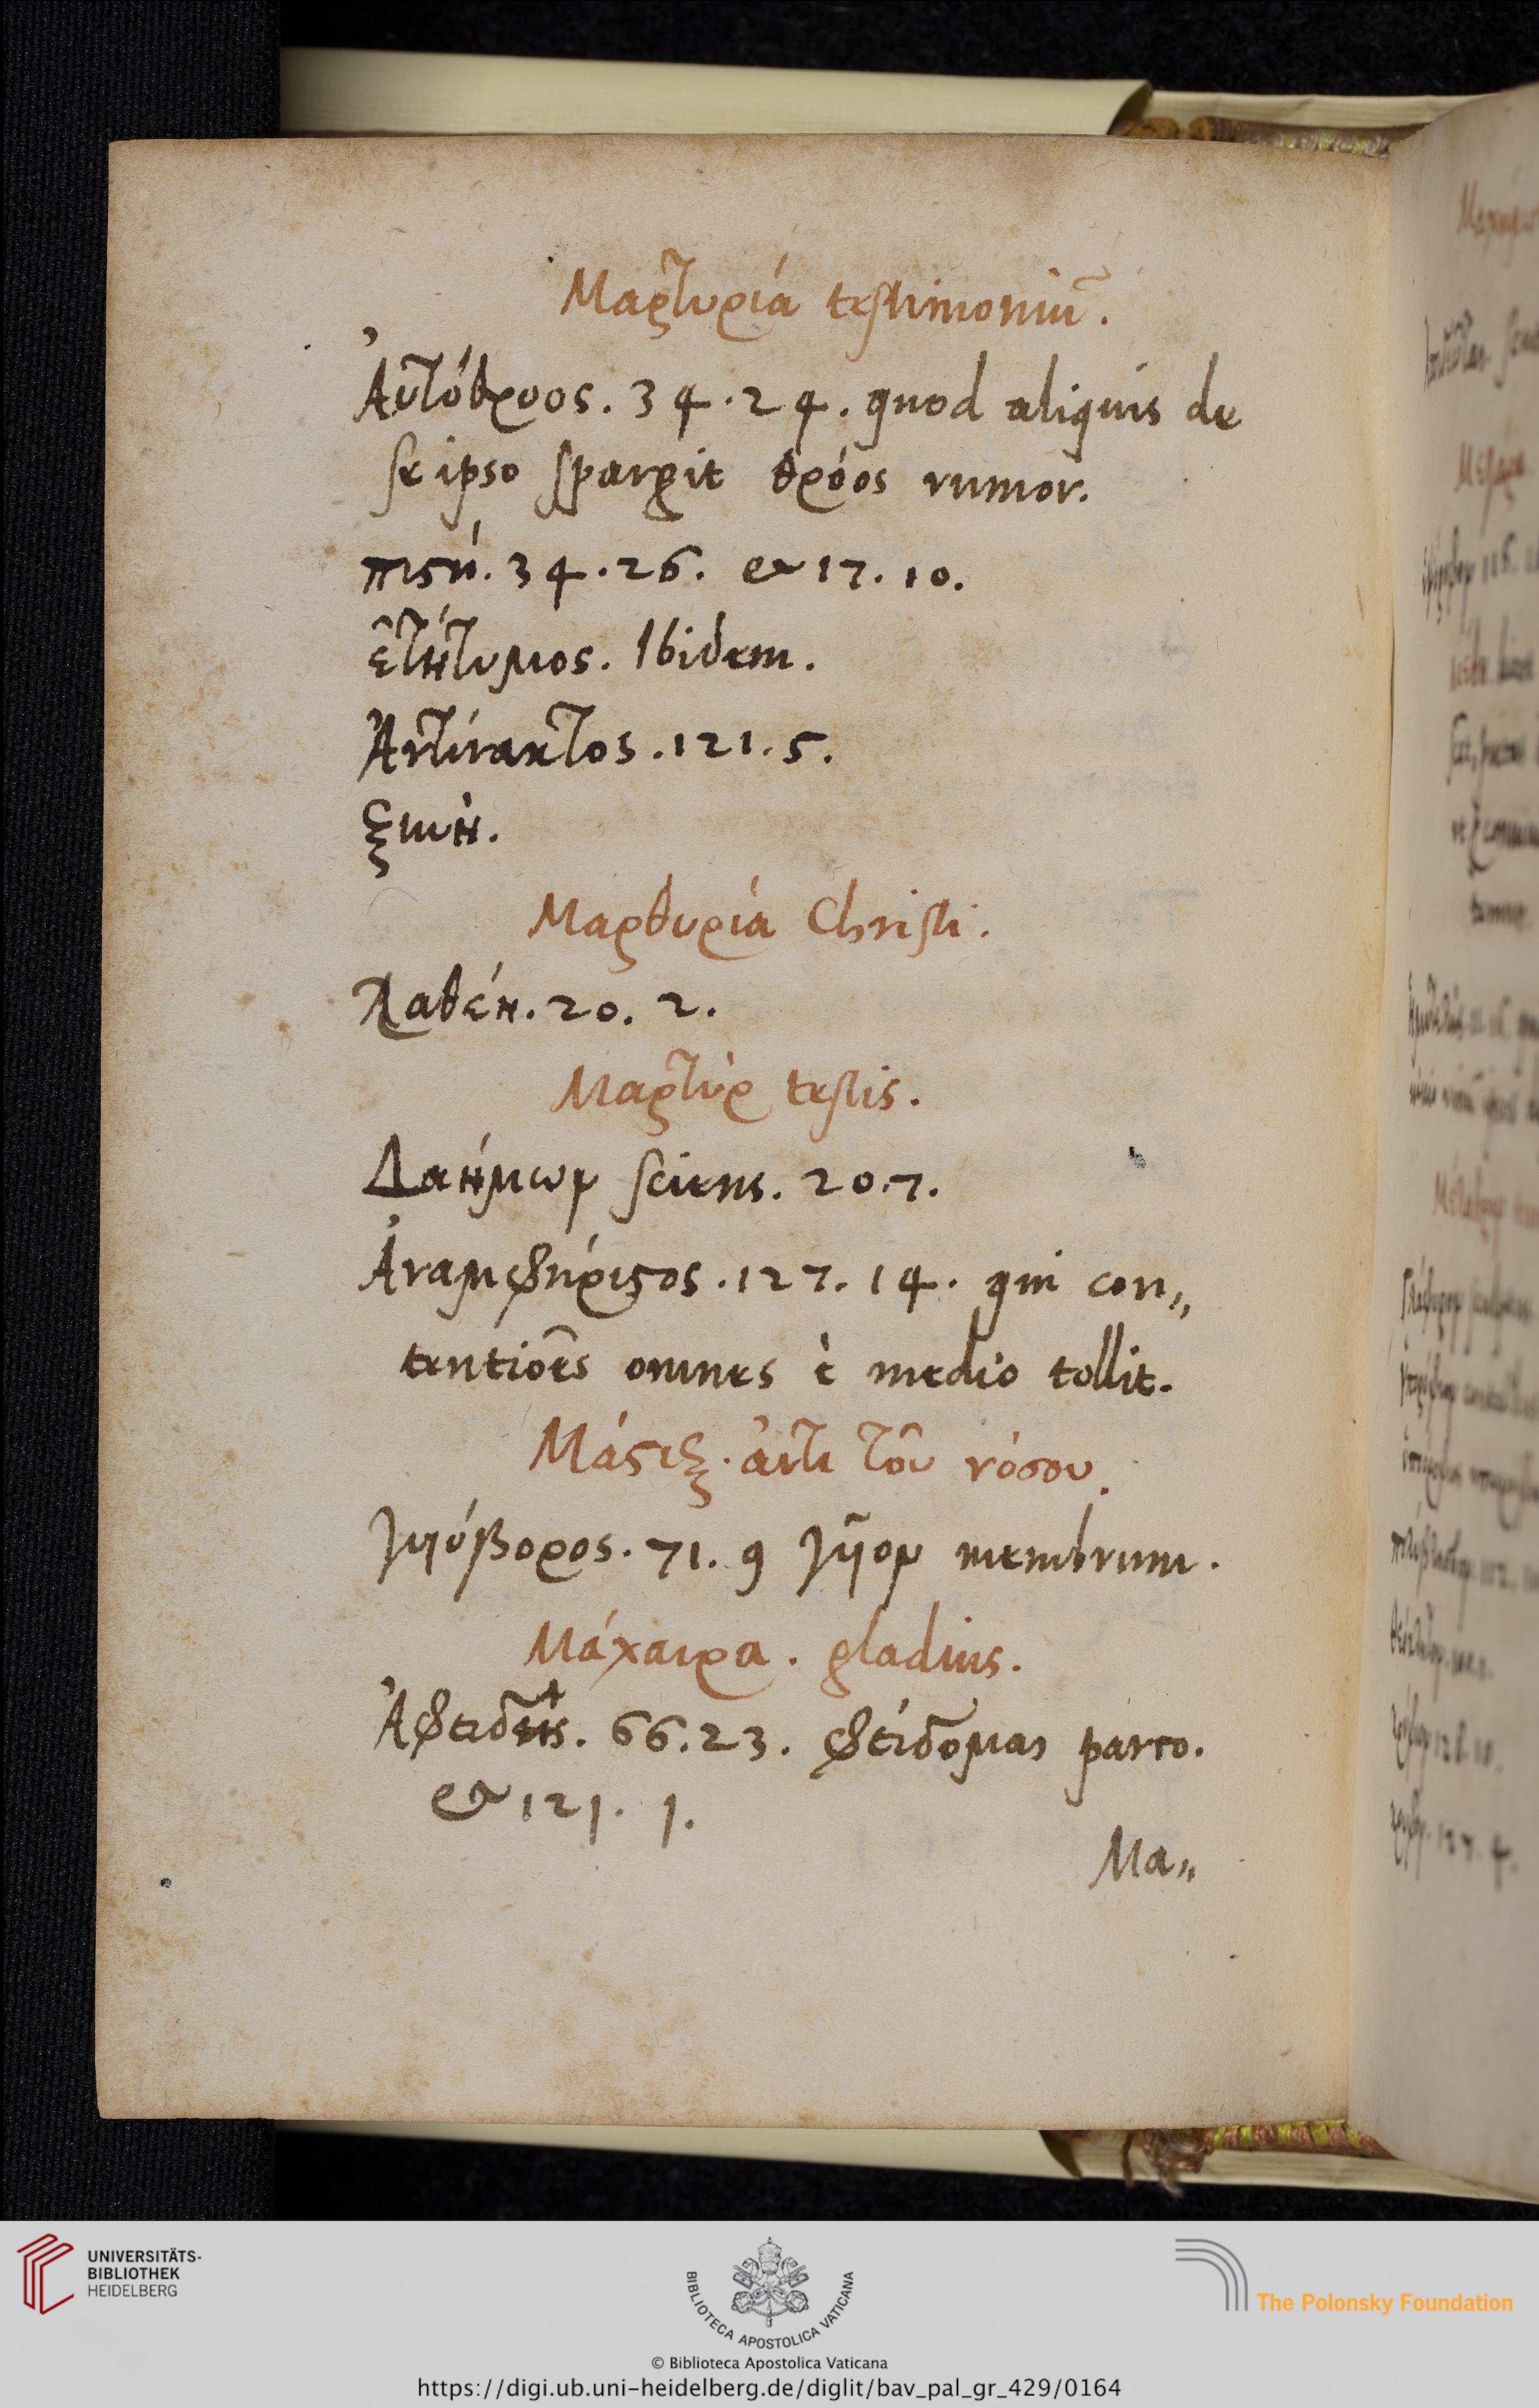 Μαρτυρία testimoniū.
Ἀυτόθροος. 34. 24. quod aliquis de
se ipso spargit θρόος rumor.
πιςή. 34. 26. et 17. 10.
ἐτήτυμος. Ibidem.
Ἀτίνακτος. 121. 5.
ξυνή.
Μαρθυρία Christi.
λαθέη. 20. 2.
Μαρτύρ testis.
Δαήμων sciens. 20. 7.
Ἀναμφήριςος. 127. 14. qui con„
tentiōēs omnes è medio tollit.
Μάςιξ. ἀντὶ τοῦ νόσου.
γυιόβορος. 71. 9 γυῖον membrum.
Μάχαιρα. gladius.
Ἀφειδεις. 66. 23. φείδομαι parco.
et 121. 1.
Μα„
UNIVERSITÄTS-
BIBLIOTHEK
HEIDELBERG
BIBLIOTECA APOSTOLICA VATICANA
The Polonsky Foundation
© Biblioteca Apostolica Vaticana
https://digi.ub.uni-heidelberg.de/diglit/bav_pal_gr_429/0164